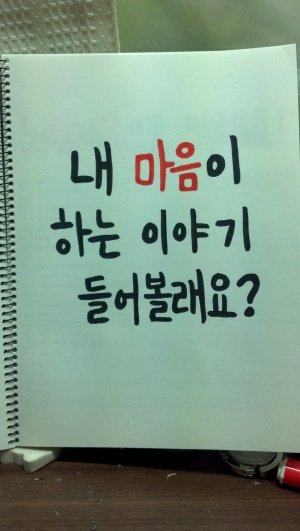 내 마음이
하는 이야기
들어볼래요?